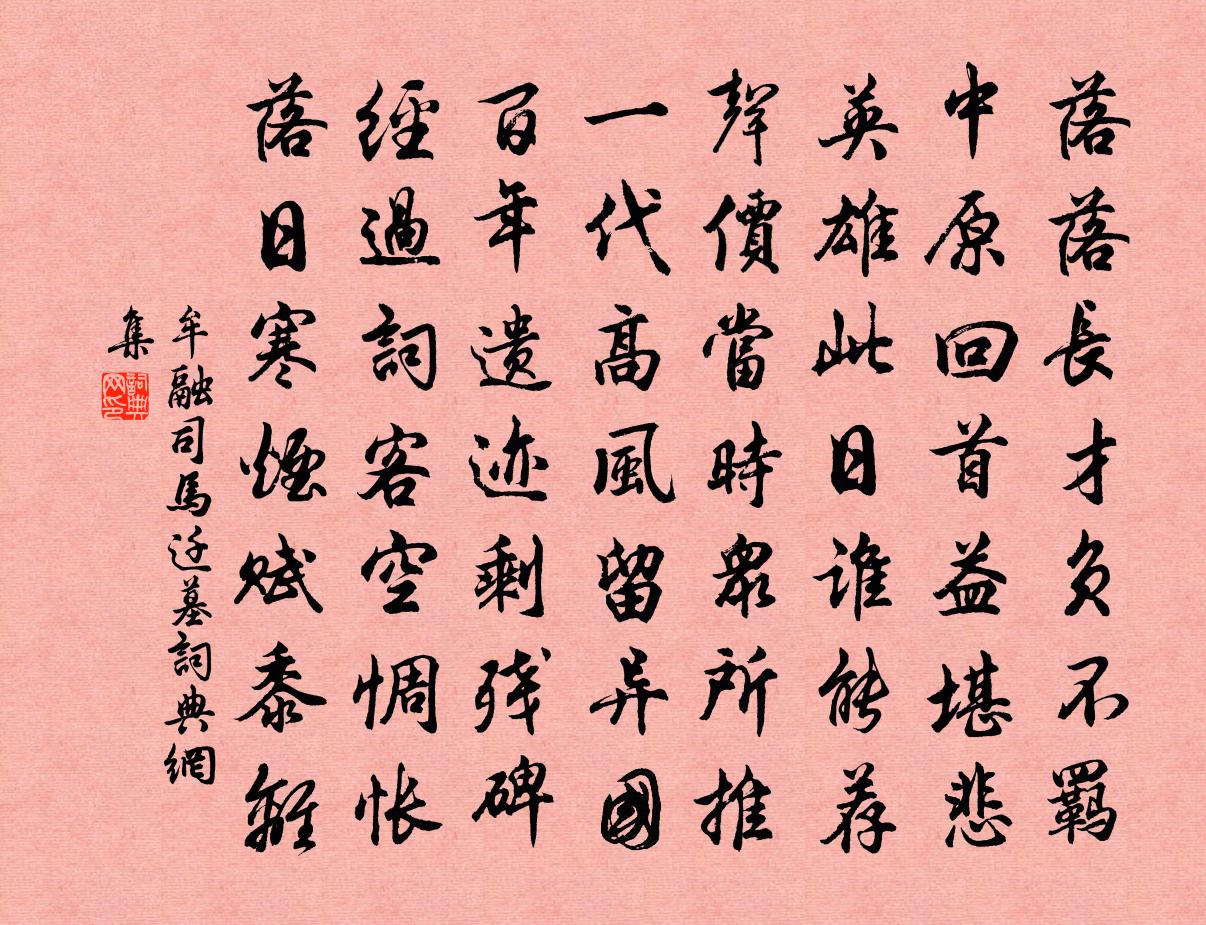 落落長才負不羈
中原回首益堪悲
英雄此日誰能荐
聲價當時衆所推
一代高風留异國
百年遗迹剩残碑
經過詞客空惆怅
落日寒煙賦黍離
牟融司馬迁墓詞典網
集
詞典网印